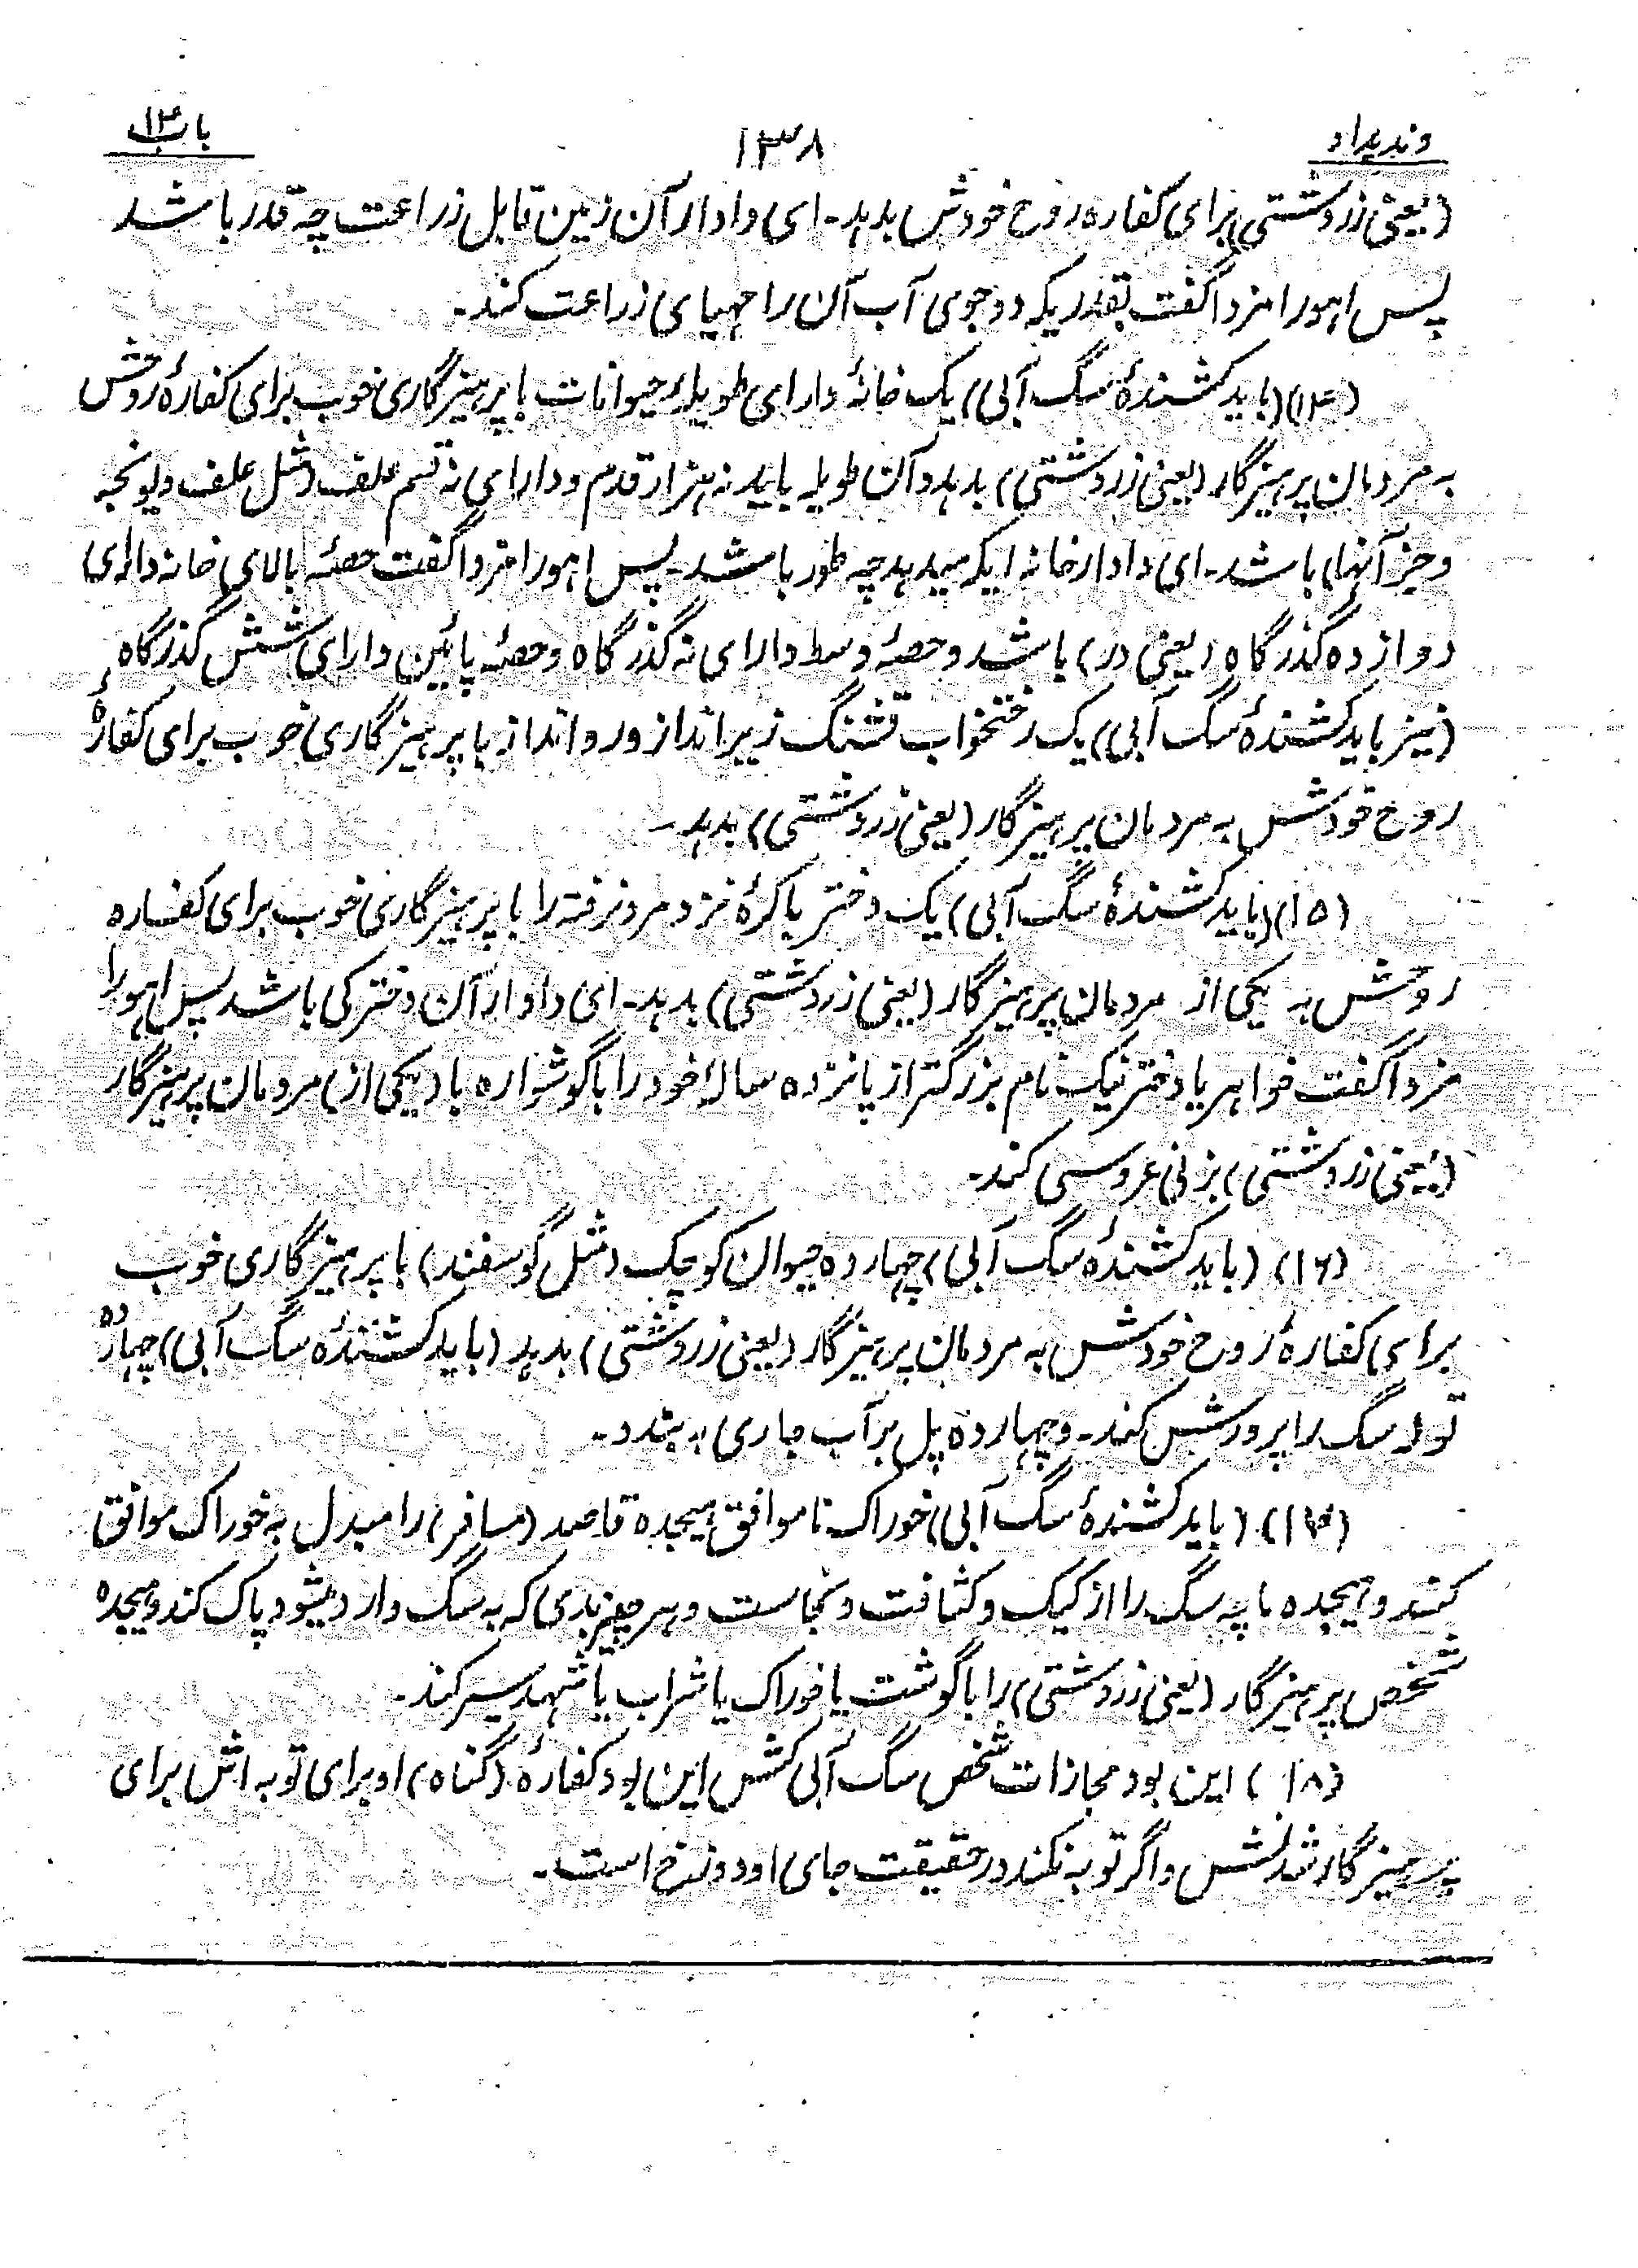 وندیداد
۱۳۸
باب ۱۴
(یعنی زردشتی) برای کفاره روح خودش بدهد۔ ای دادار آن زمین قابل زراعت چه قدر باشد
پس اهورا مزدا گفت بقدریکه دو جوی آب آن را مهیای زراعت کند۔
(۱۴) (باید کشندهٔ سگ آبی) یک خانهٔ دارای طویلهٔ حیوانات با پرهیزگاری خوب برای کفارهٔ روحش
به مردمان پرهیزگار (یعنی زردشتی) بدهد و آن طویله باید نه هزار قدم و دارای نه قسم علف (مثل علف و یونجه
و جز آنها) باشد۔ ای دادار خانه ایکه میدهد چه طور باشد۔ پس اهورا مزدا گفت حصهٔ بالای خانه دارای
دوازده گذرگاه (یعنی در) باشد و حصهٔ وسط دارای نه گذرگاه و حصهٔ پائین دارای شش گذرگاه
(نیز باید کشندهٔ سگ آبی) یک رختخواب قشنگ زیرانداز و روانداز با پرهیزگاری خوب برای کفارهٔ
روح خودش به مردمان پرهیزگار (یعنی زردشتی) بدهد۔
(۱۵) (باید کشندهٔ سگ آبی) یک دختر باکرهٔ نزد مرد نرفته را با پرهیزگاری خوب برای کفاره
روحش به یکی از مردمان پرهیزگار (یعنی زردشتی) بدهد۔ ای دادار آن دختر کی باشد پس اهورا
مزدا گفت خواهر یا دختر نیک نام بزرگتر از پانزده سالهٔ خود را با گوشواره با (یکی از) مردمان پرهیزگار
(یعنی زردشتی) بزنی عروسی کند۔
(۱۶) (باید کشندهٔ سگ آبی) چهارده حیوان کوچک (مثل گوسفند) با پرهیزگاری خوب
برای کفارهٔ روح خودش به مردمان پرهیزگار (یعنی زردشتی) بدهد (باید کشندهٔ سگ آبی) چهارده
توله سگ را پرورش کند۔ و چهارده پل بر آب جاری به بندد۔
(۱۷) (باید کشندهٔ سگ آبی) خوراک ناموافق هیجده قاصد (مسافر) را مبدل به خوراک موافق
کند و هیجده ماچه سگ را از کیک و کثافت و نجاست و هر چیز بدی که به سگ وارد میشود پاک کند و هیجده
شخص پرهیزگار (یعنی زردشتی) را با گوشت یا خوراک یا شراب یا شهد سیر کند۔
(۱۸) این بود مجازات شخص سگ آبی کش این بود کفارهٔ (گناه) او برای توبه اش برای
پرهیزگار شدنش و اگر توبه نکند در حقیقت جای او دوزخ است۔